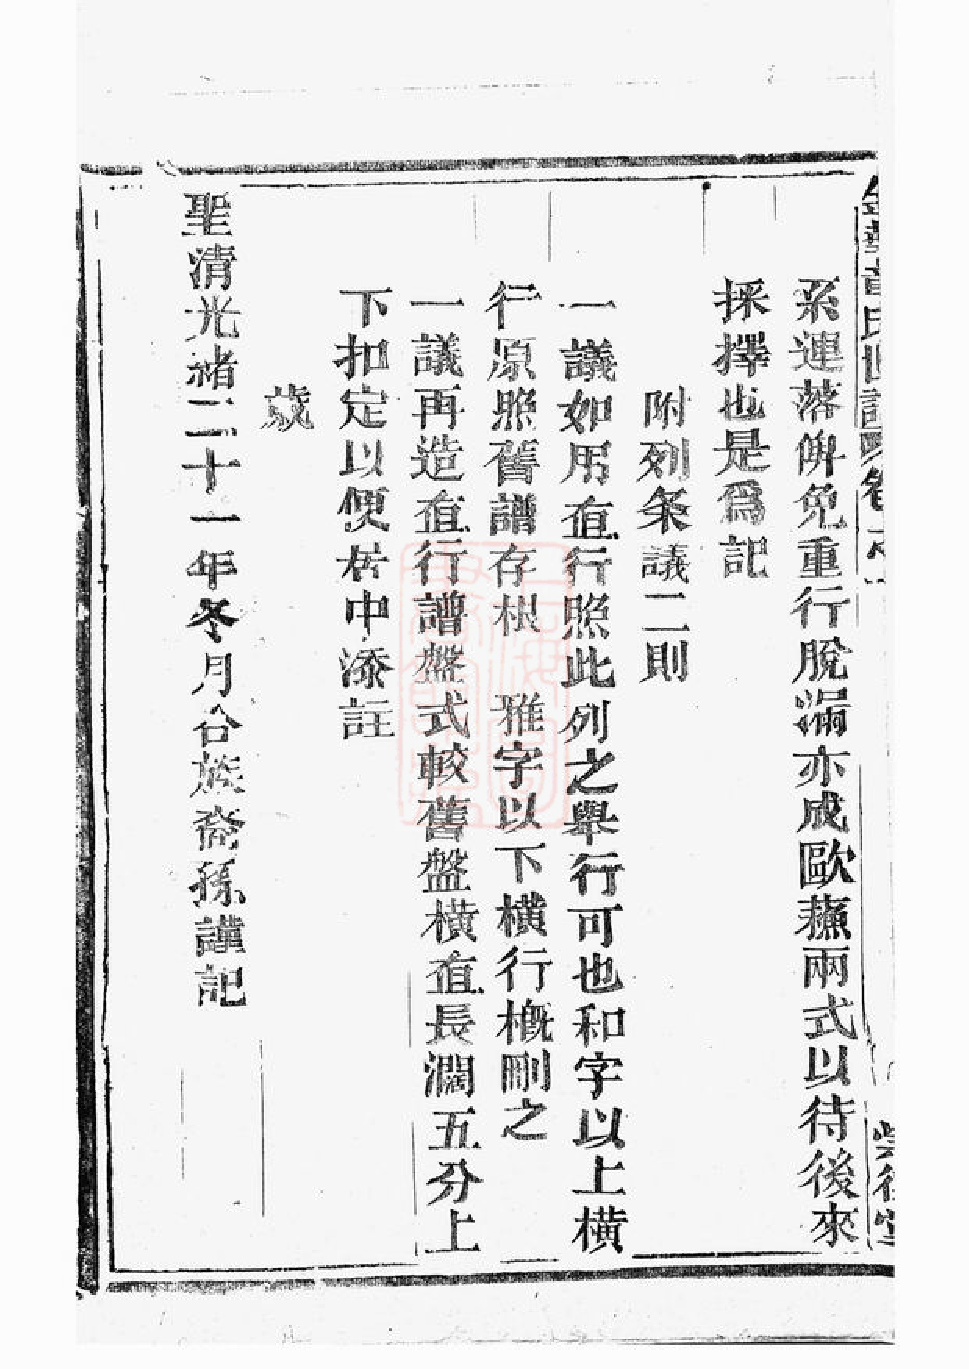 系連落俾免重行脫漏亦成歐蘇兩式以待後來
採擇也是爲記
附列条議二則
一議如用直行照此列之舉行可也和字以上橫
行原照舊譜存根 雅字以下橫行概刪之
一議再造直行譜盤式較舊盤橫直長濶五分上
下扣定以便居中添註
歲
聖清光緒二十一年冬月合族裔孫謹記